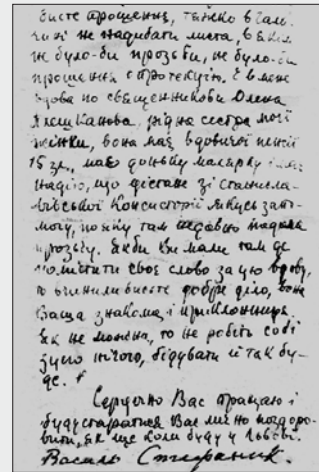 бисте прошення, тяжко в Гали-
чині не надибати листа, в якім
не було-би прозьби, не було-би
прошення о протекцію. Є в мене
вдова по священникови Олена
Плешканова, рідна сестра мої
жінки, вона має вдовичої пенсії
15 зл., має доньку малярку і має
надію, що дістане зі станисла-
вівської Консисторії якусь запо-
могу, по яку там недавно подала
прозьбу. Якби Ви мали там де
помістити своє слово за цю вдову,
то вчинили бисте добре діло, вона
Ваша знакома і приклонниця.
Як не можна, то не робіть собі
зусю нічого, бідувати й так бу-
де.
Сердечно Вас працаю і
буду старатися Вас лично поздоро-
вити, як ще коли буду у Львові.
Василь Стефаник.